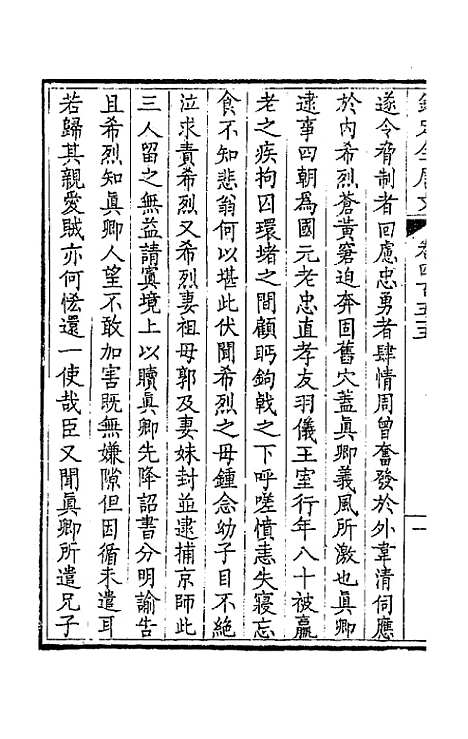 欽定全唐文　卷四百五十五　一
遂令脅制者回慮忠勇者肆情周曾奮發於外韋清伺應
於內希烈蒼黃窘迫奔固舊穴蓋眞卿義風所激也眞卿
逮事四朝爲國元老忠直孝友羽儀王室行年八十被羸
老之疾拘囚環堵之間顧眄鉤戟之下呼嗟憤恚失寢忘
食不知悲翁何以堪此伏聞希烈之母鍾念幼子目不絕
泣求責希烈又希烈妻祖母郭及妻妹封並逮捕京師此
三人留之無益請寘境上以贖眞卿先降詔書分明諭告
且希烈知眞卿人望不敢加害旣無嫌隙但因循未遣耳
若歸其親愛賊亦何恡還一使哉臣又聞眞卿所遣兄子